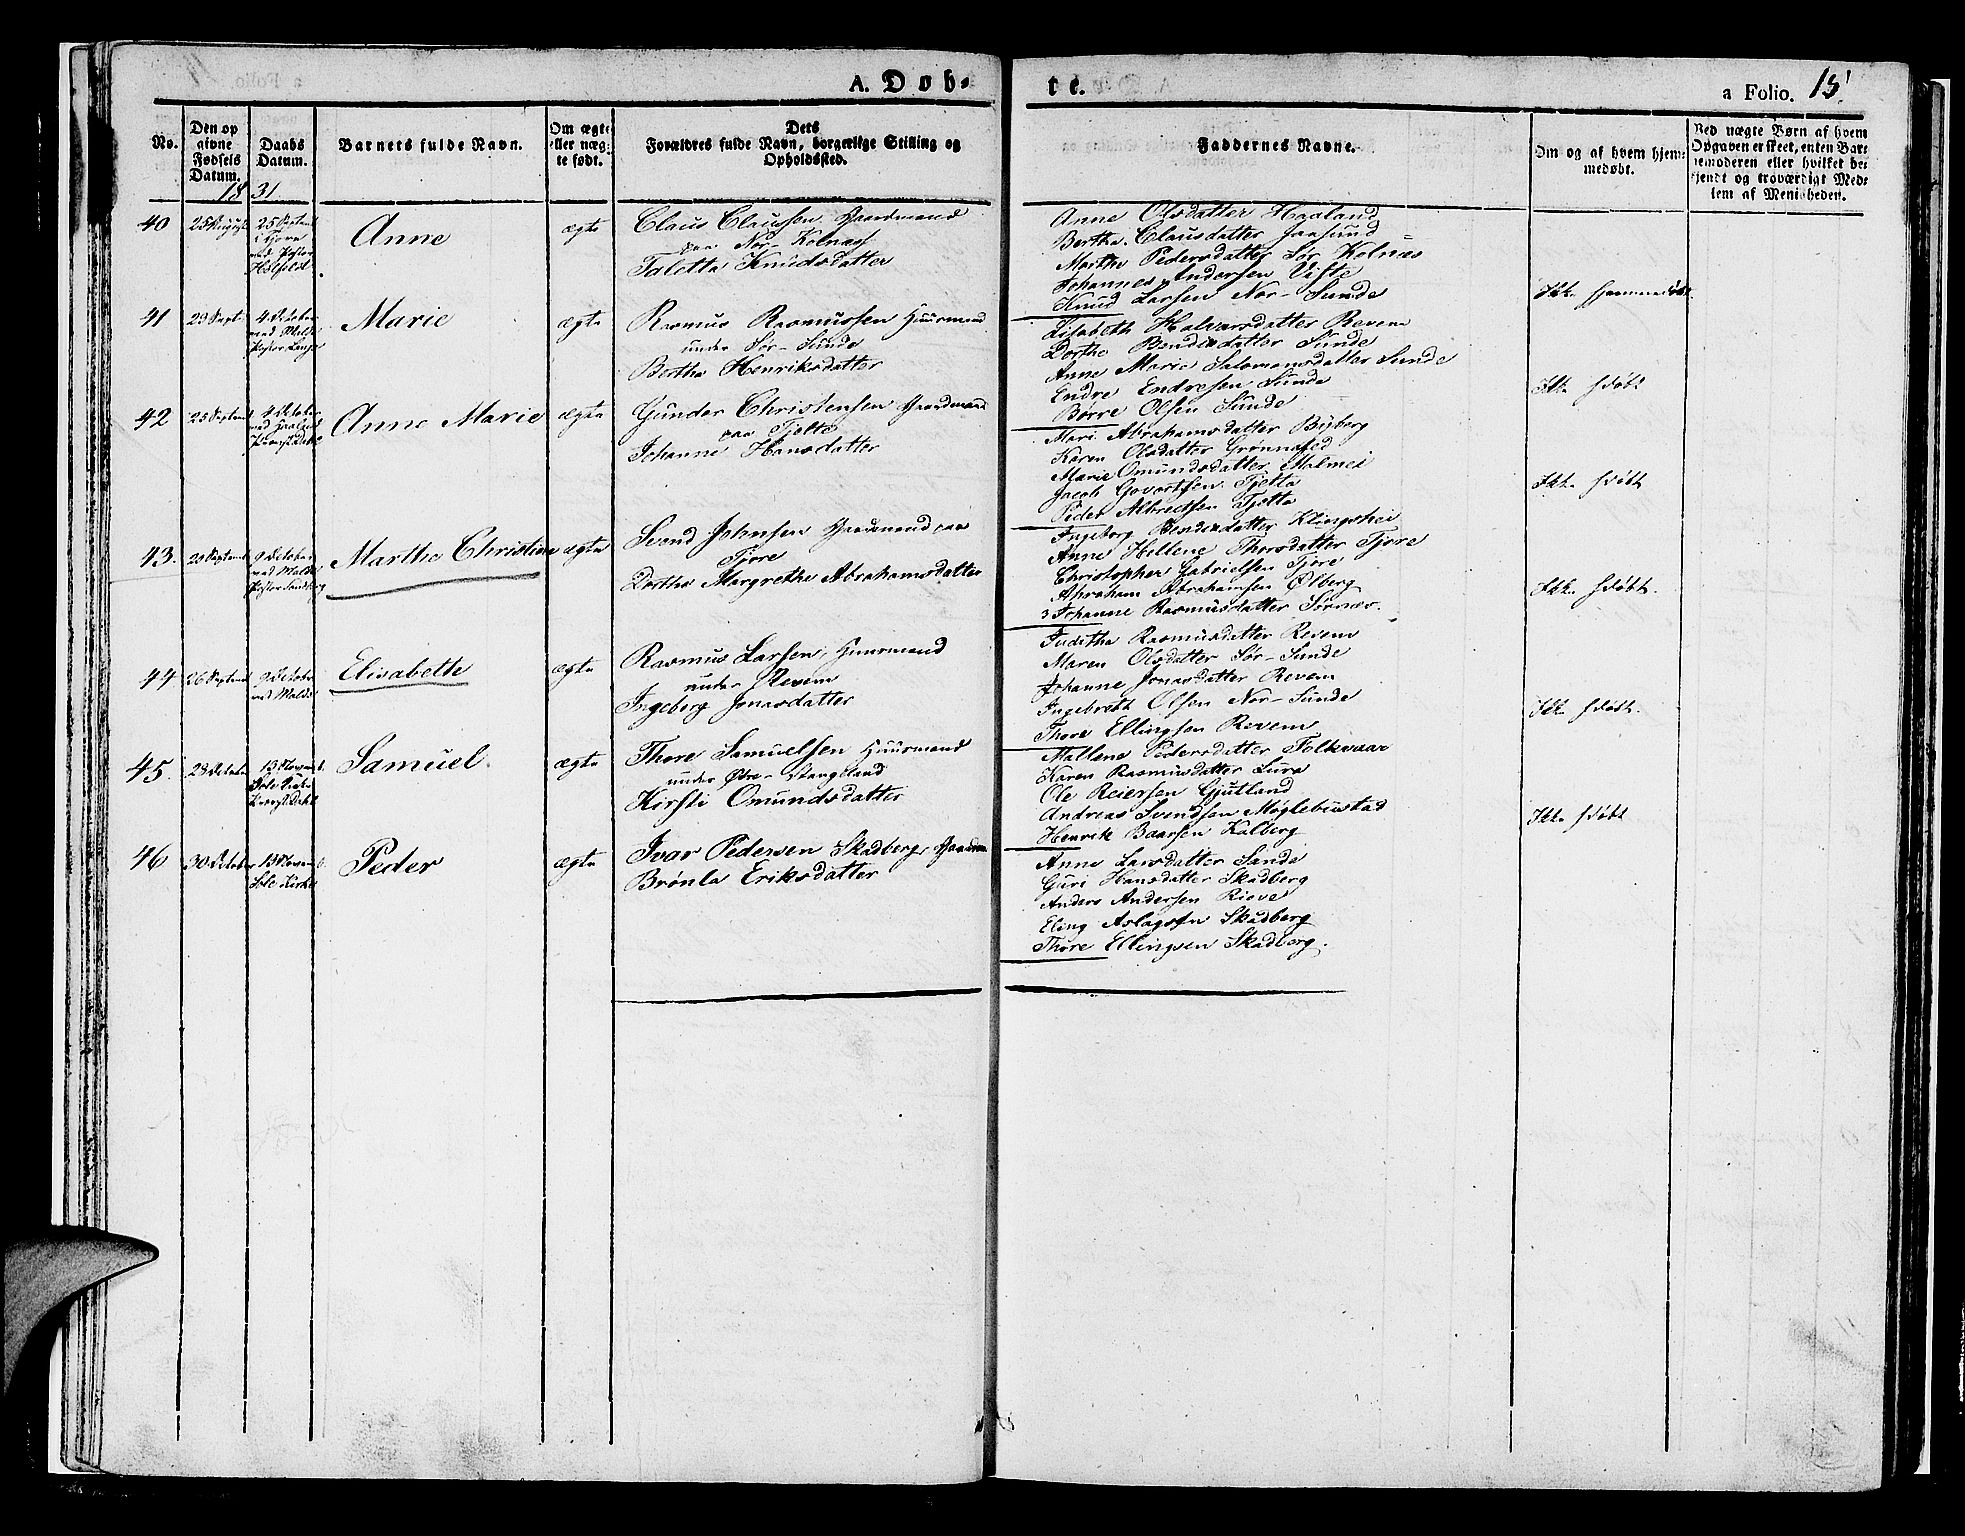 A. Døb-
te.
a Folio. 15
No.
Den op
givne
Fødsels
Datum.
Daabs
Datum.
Barnets fulde Navn.
Om ægte
eller uæg-
te født.
Dets
Forældres fulde Navn, borgerlige Stilling og
Opholdssted.
Faddernes Navne.
Om og af hvem hjem-
medøbt.
Ved uægte Børn af hvem
Opgaven er skeet, enten Bar-
nemoderen eller hvilket be-
kjendt og troværdigt Med-
lem af Menigheden.
1831
40
25 August
25 Septem
i Tjora
ved Pastor
Anne
ægte
Claus Claussen Gaardmand
paa Nor-Kolnæs
Taletta Knudsdatter
Anne Olsdatter Haaland
Bertha Clausdatter Jaasund
Martha Pedersdatter Sør Kolnæs
Johannes Andersen Viste
Knud Larsen Nor-Sunde
Ikke hjemmedøbt
41
29 Sept
4 October
Marie
ægte
Rasmus Rasmussen Huusmand
under Sør-Sunde
Bertha Henriksdatter
Lisabeth Halvorsdatter Revem
Dorthe Bendixdatter Sunde
Anne Marie Salomonsdatter Sunde
Endre Endresen Sunde
Børre Olsen Sunde
Ikke hdøbt
42
25 Septemb
4 October
Anne Marie
ægte
Gunder Christensen Gaardmand
paa Tjelta
Johanne Hansdatter
Mari Abrahamsdatter Byberg
Karen Olsdatter
Marie Omundsdatter Malmei
Jacob Govertsen Tjelta
Peder Albretsen Tjelta
Ikke hdøbt
43.
9 October
Marthe Christine
ægte
Svend Johnsen Gaardmand paa
Tjore
Dorthe Margrethe Abrahamsdatter
Ingeborg Bendixdatter Klingshei
Anne Hellene Thorsdatter Tjore
Christopher Gabrielsen Tjore
Abraham Abrahamsen Ølberg
Johanne Rasmusdatter Sørnæs.
Ikke hdøbt.
44
26 Septemb
9 October
ved Malde
Elisabeth
ægte
Rasmus Larsen, Huusmand
under Revem
Ingeborg Jonasdatter
Juditha Rasmusdatter Revem
Maren Olsdatter Sør-Sunde
Johanne Jonasdatter Revem
Ingebreth Olsen Nor-Sunde
Thore Ellingsen Revem
Ikke hdøbt.
45.
23 October
13 Novemb.
Sole Kirke
Samuel.
ægte
Thore Samuelsen Huusmand
under Øvre-Stangeland
Kirsti Omundsdatter
Mallene Pedersdatter Folkvaar
Karen Rasmusdatter Lura
Ole Reiersen Gjutland
Andreas Svendsen Møglebustad
Henrik Baarsen Kalberg
Ikke hdøbt
46
30 October
13 Novemb.
Sole Kirke
Peder
ægte
Ivar Pedersen Skadberg, Gaardm
Brønla Eriksdatter
Anne Larsdatter Sande
Guri Hansdatter Skadberg
Anders Andersen Risve
Eling Aslagsen Skadberg
Thore Ellingsen Skadberg.